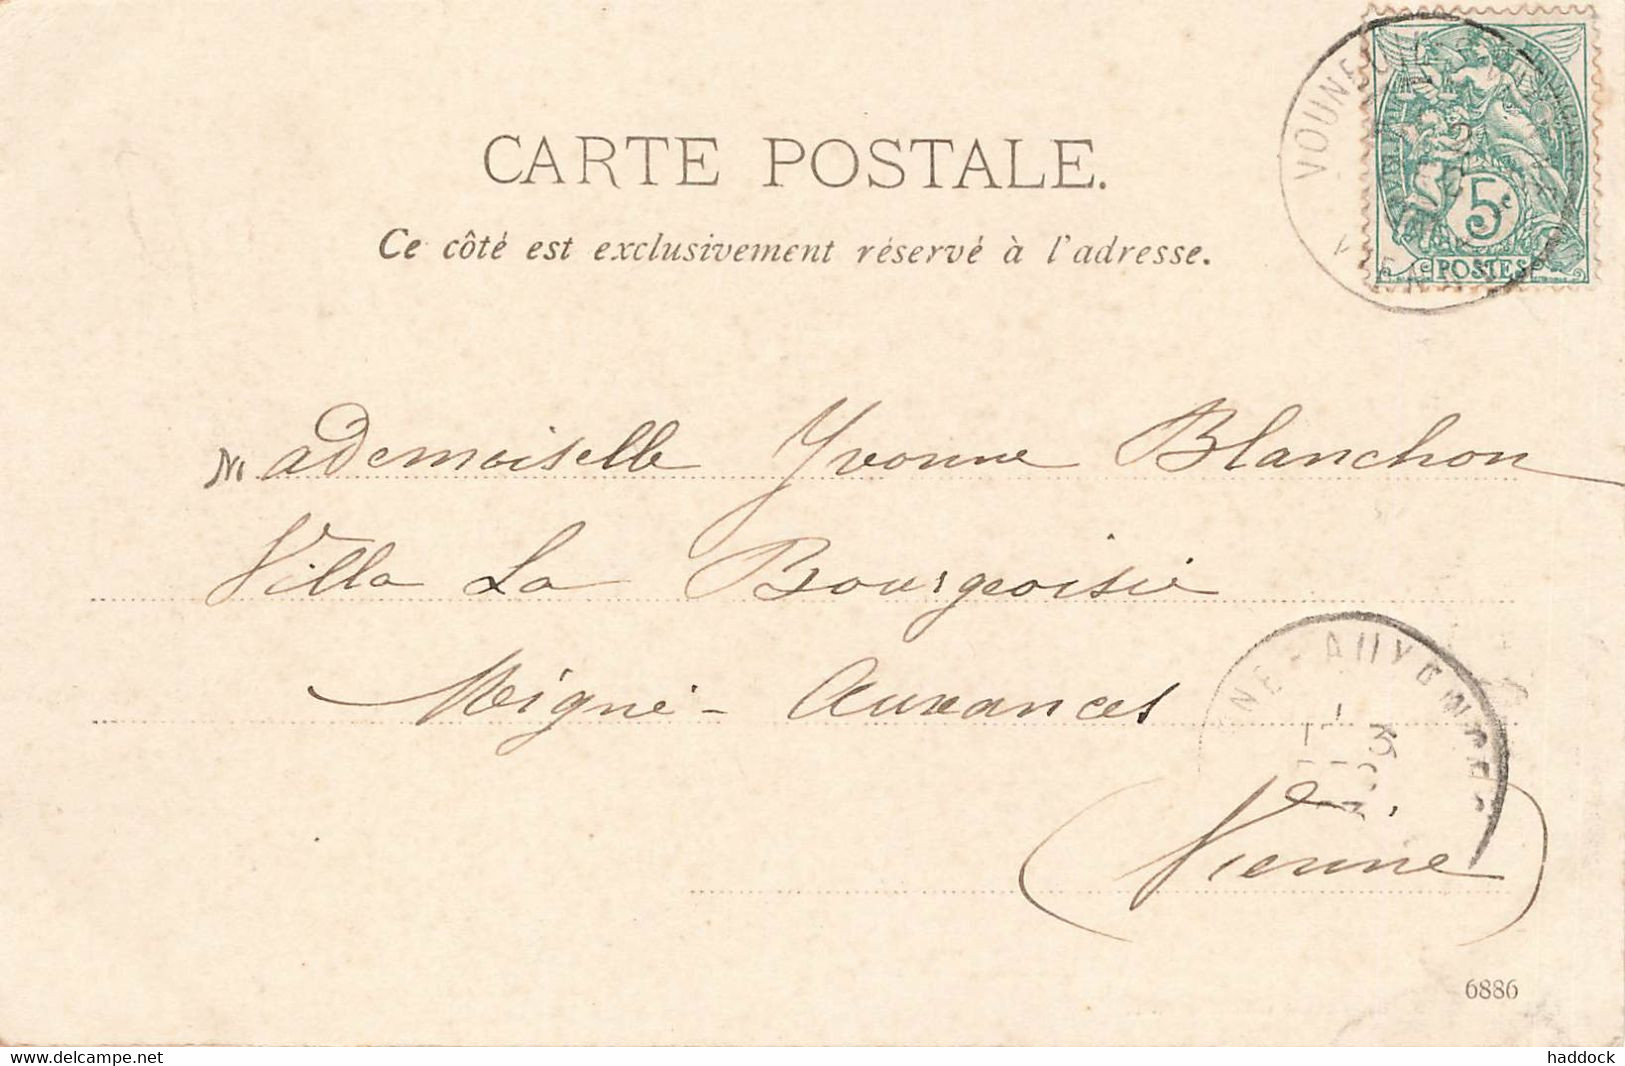 CARTE POSTALE.
Ce côté est exclusivement réservé à l'adresse.
5c
POSTES
Mademoiselle Yvonne Blanchon
Villa La Bourgeoisie
Migné-Auxances
(Vienne)
6886
www.delcampe.net
haddock